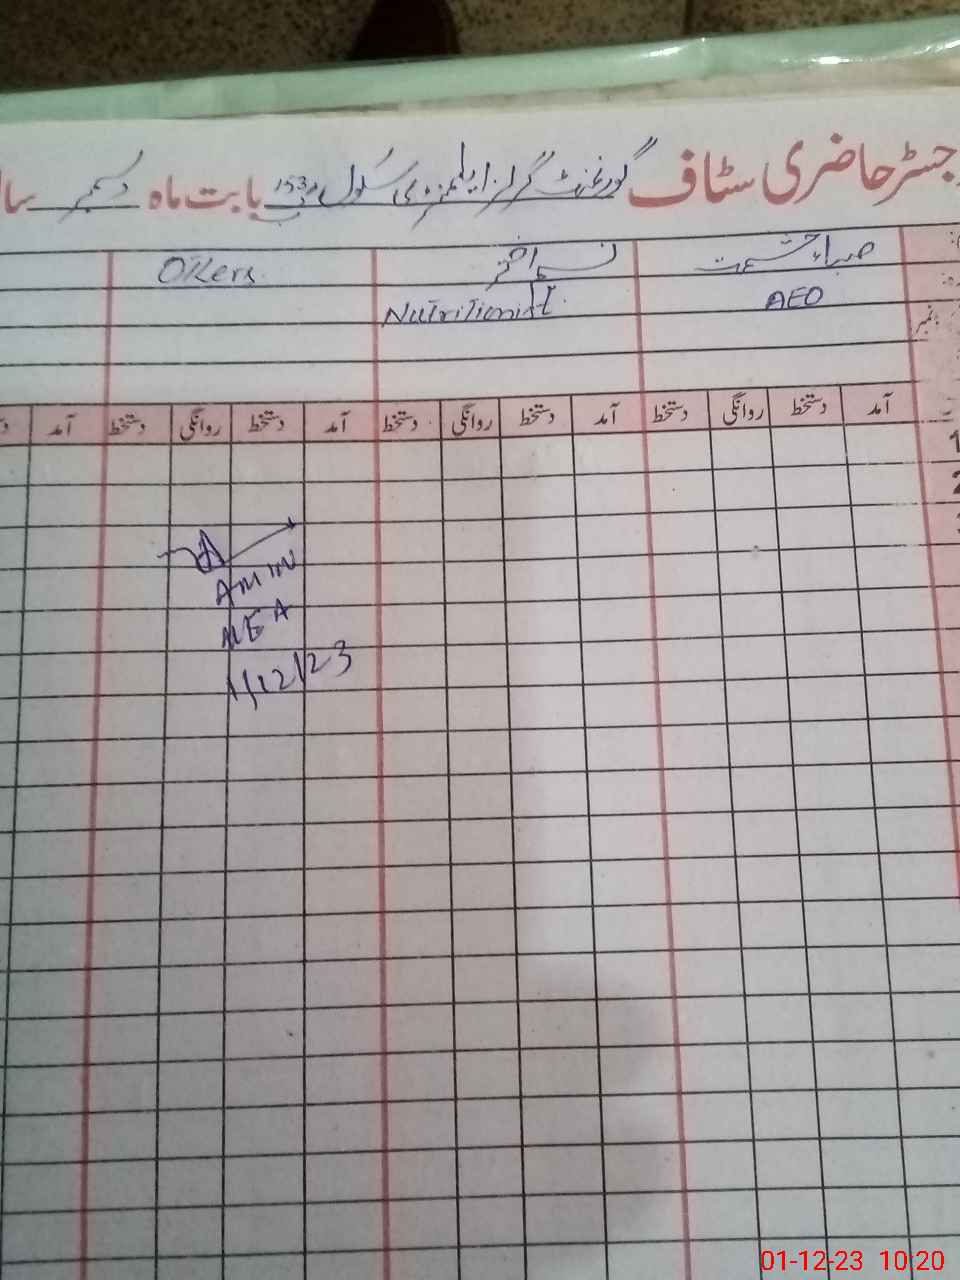 رجسٹر حاضری سٹاف گورنمنٹ گرلز ایلیمنٹری سکول 153 بابت ماہ دسمبر
صباء حشمت نسیم اختر Others
AEO Nutritionist
نمبر
آمد دستخط روانگی دستخط آمد دستخط روانگی دستخط آمد دستخط روانگی دستخط آمد
1
2
3
AMIN
MEA
1/12/23
01-12-23 10:20